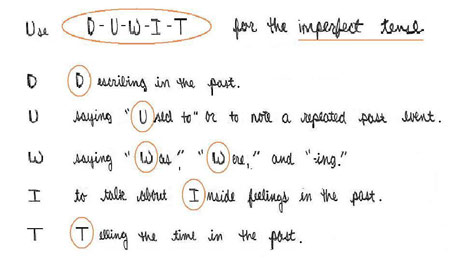 Use D-U-W-I-T for the imperfect tense
D Describing in the past.
U saying "Used to" or to note a repeated past event.
W saying "Was", "Were," and "-ing."
I to talk about Inside feelings in the past.
T Telling the time in the past.